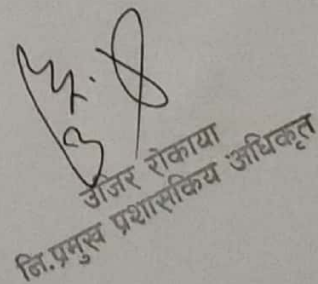 उजिर रोकाया
नि.प्रमुख प्रशासकिय अधिकृत